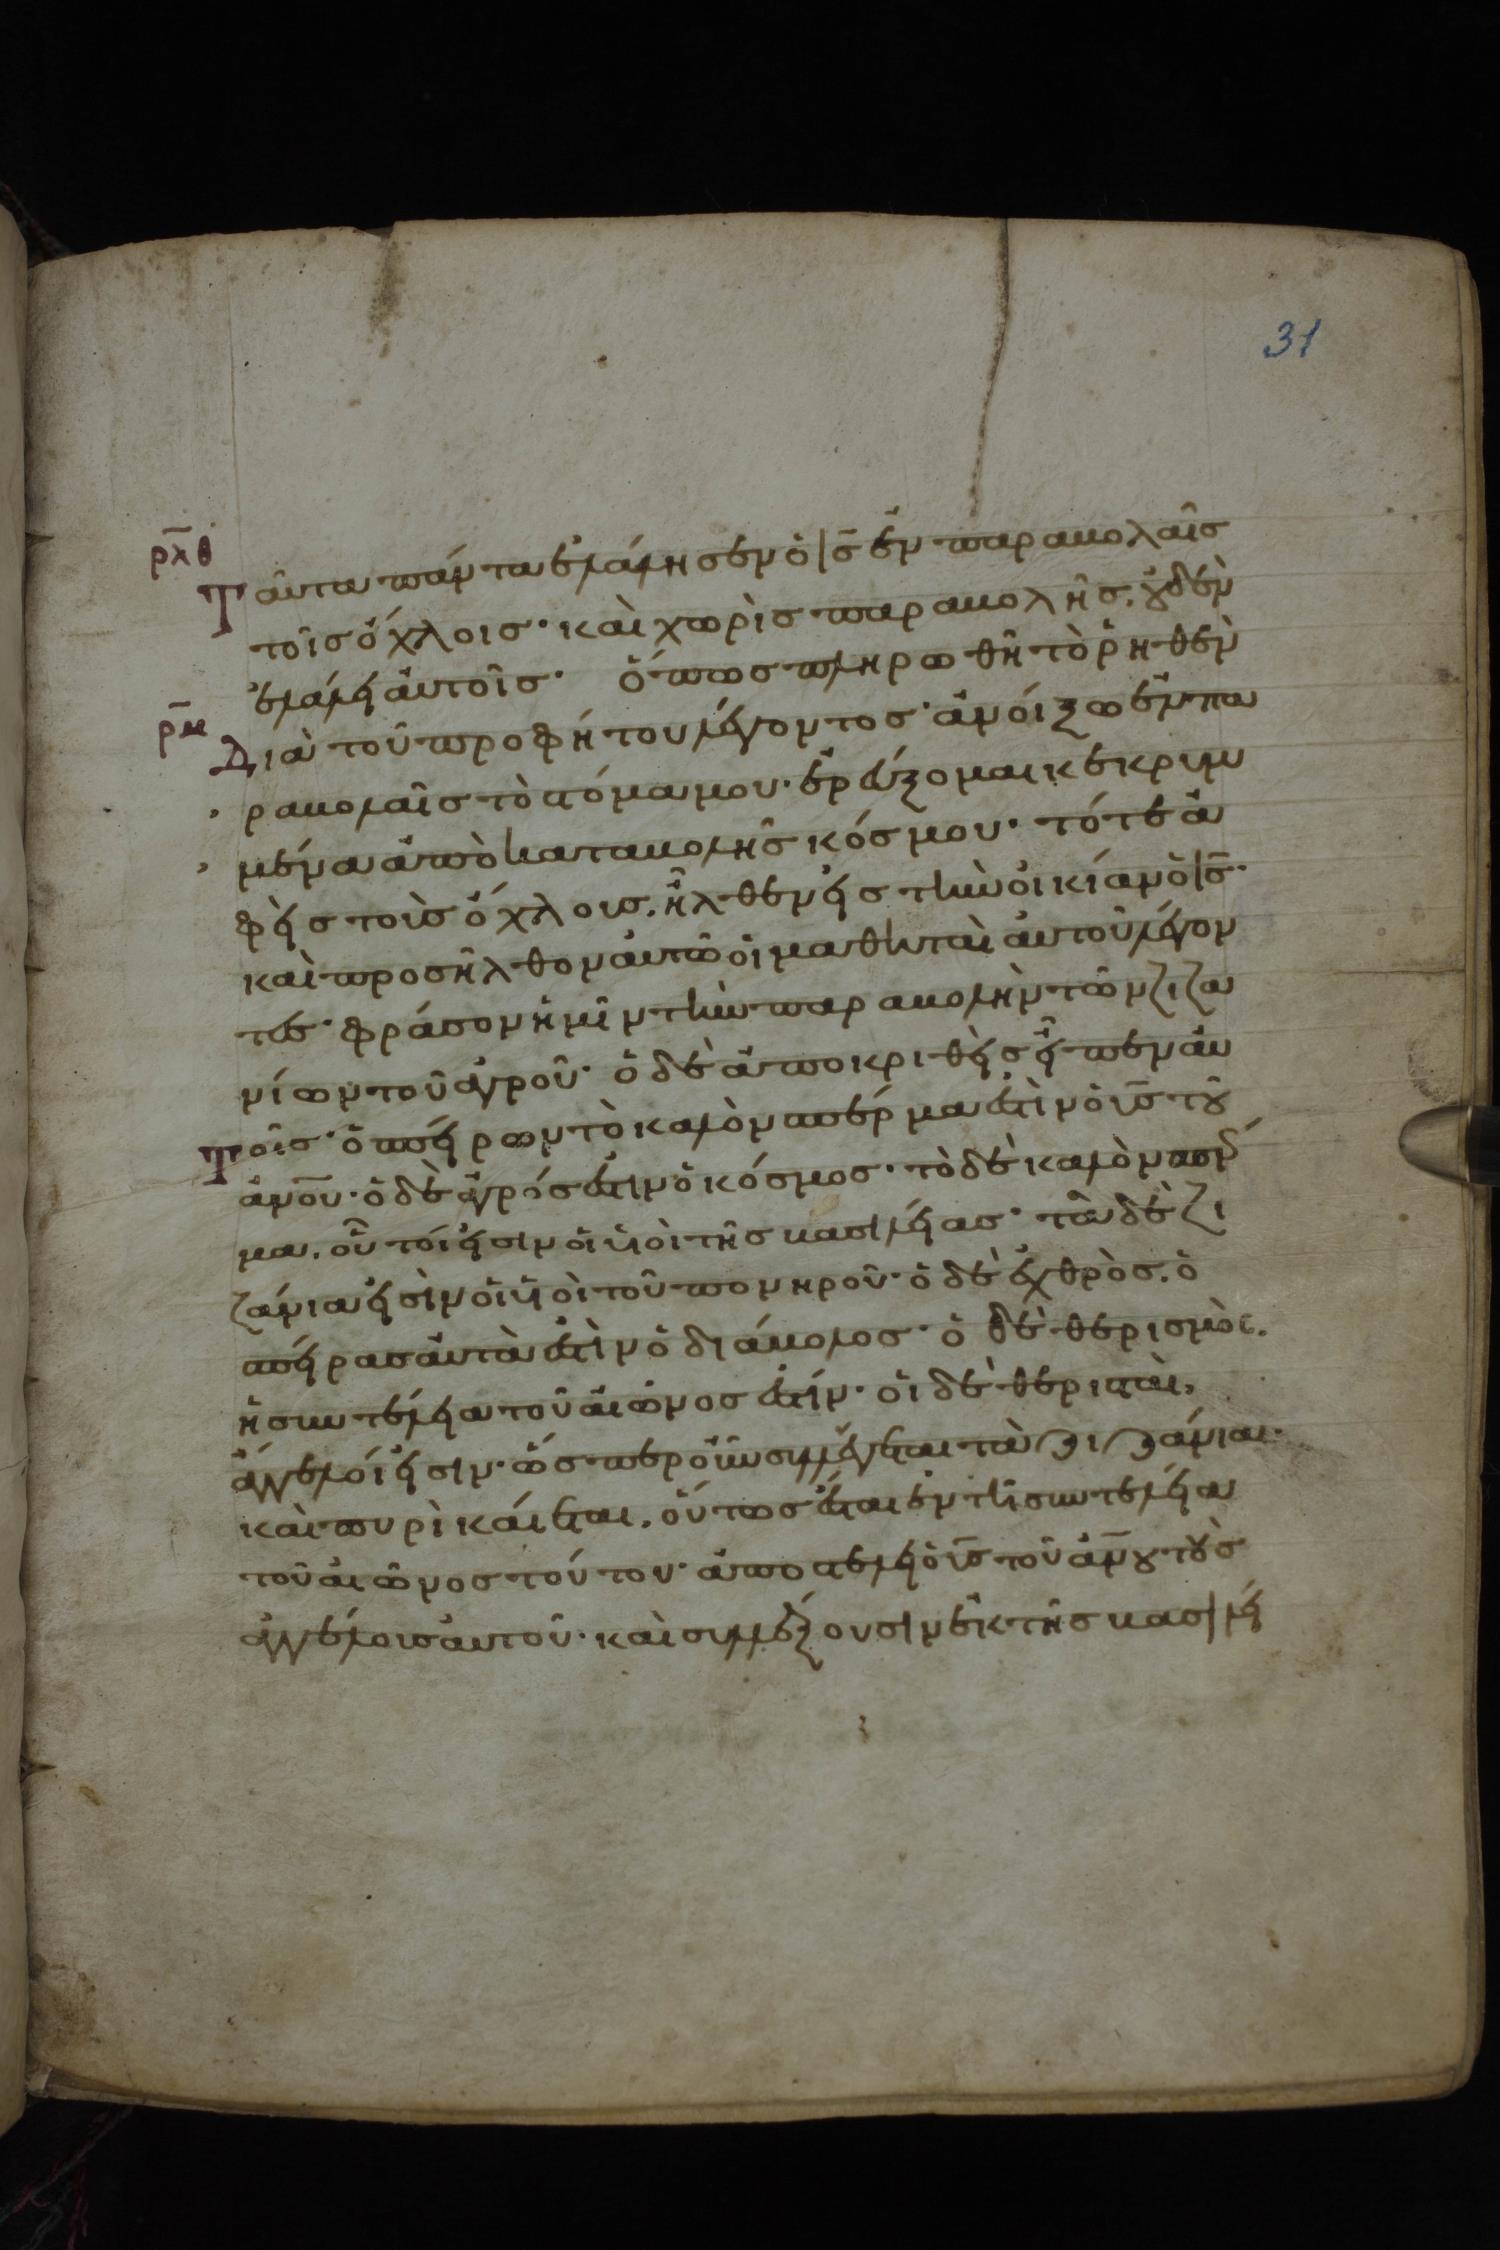 31
ρλθ
Ταῦτα πάντα ἐλάλησεν ὁ ις ἐν παραβολαῖς
τοῖς ὄχλοις· καὶ χωρὶς παραβολῆς, οὐδὲν
ἐλάλει αὐτοῖς· ὅπως πληρωθῆ τὸ ῥηθὲν
ρμ
Διὰ τοῦ προφήτου λέγοντος· ἀνοίξω ἐν πα
ραβολαῖς τὸ στόμα μου· ἐρεύξομαι κεκρυμ
μένα ἀπὸ καταβολῆς κόσμου· τότε ἀ
φεὶς τοὺς ὄχλους, ἦλθεν εἰς τὴν οἰκίαν ὁ ις·
καὶ προσῆλθον αὐτῶ οἱ μαθηταὶ αὐτοῦ λέγον
τες· φράσον ἡμῖν τὴν παραβολὴν τῶν ζιζα
νίων τοῦ ἀγροῦ· ὁ δὲ ἀποκριθεὶς εἶπεν αὐ
Τοῖς· ὁ σπείρων τὸ καλὸν σπέρμα ἐστὶν ὁ υς τοῦ
ἀνου· ὁ δὲ ἀγρός ἐστιν ὁ κόσμος· τὸ δὲ καλὸν σπέρ
μα, οὗτοί εἰσιν οἱ υἱοὶ τῆς βασιλείας· τὰ δὲ ζι
ζάνια εἰσὶν οἱ υἱοὶ τοῦ πονηροῦ· ὁ δὲ ἐχθρὸς, ὁ
σπείρας αὐτὰ ἐστὶν ὁ διάβολος· ὁ δὲ θερισμὸς,
ἡ συντέλεια τοῦ αἰῶνος ἐστίν· οἱ δὲ θερισταὶ,
ἄγγελοί εἰσιν· ὥσπερ οὖν συλλέγεται τὰ ζιζάνια·
καὶ πυρὶ καίεται, οὕτως ἔσται ἐν τῆ συντελεία
τοῦ αἰῶνος τούτου· ἀποστελεῖ ὁ υς τοῦ ἀνου τοὺς
ἀγγέλους αὐτοῦ· καὶ συλλέξουσιν ἐκ τῆς βασιλεί